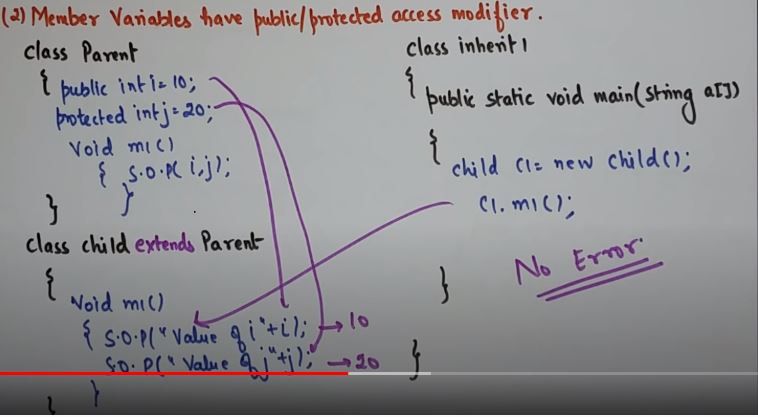 (2) Member Variables have public/protected access modifier.
class Parent
{ public int i= 10;
protected int j= 20;
Void m1()
{ S.O.P( i,j);
}
}
class child extends Parent
{
Void m1()
{ S.O.P(" Value of i"+i); → 10
S.O.P(" Value of j"+j); → 20
}
}
class inherit1
{
public static void main(String a[])
{
child C1= new child();
C1.m1();
}
}
No Error.